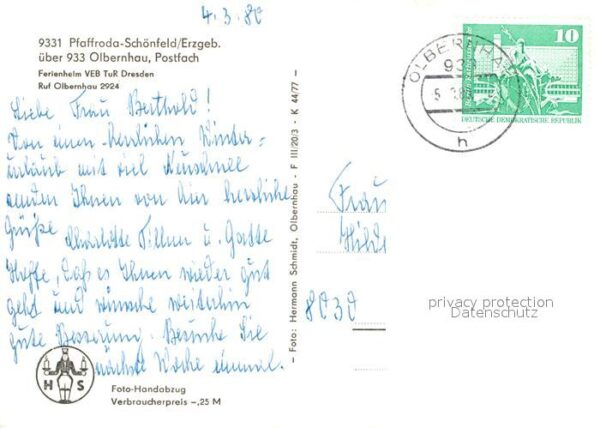 4.3.80
9331 Pfaffroda-Schönfeld/Erzgeb.
über 933 Olbernhau, Postfach
Ferienheim VEB TuR Dresden
Ruf Olbernhau 2924
Liebe Frau Berthold!
Von einem herrlichen Winter=
urlaub mit viel Neuschnee
senden Ihnen von hier herzliche
Grüße
Charlotte u. Gatte
Hoffe, daß es Ihnen wieder gut
geht und wünsche weiterhin
gute Besserung. Besuche Sie
nächste Woche einmal.
H S
Foto-Handabzug
Verbraucherpreis -,25 M
Foto: Hermann Schmidt, Olbernhau - F III/20/3 - K 44/77 -
OLBERNHAU
933
h
10
DEUTSCHE DEMOKRATISCHE REPUBLIK
Frau
8030
privacy protection
Datenschutz